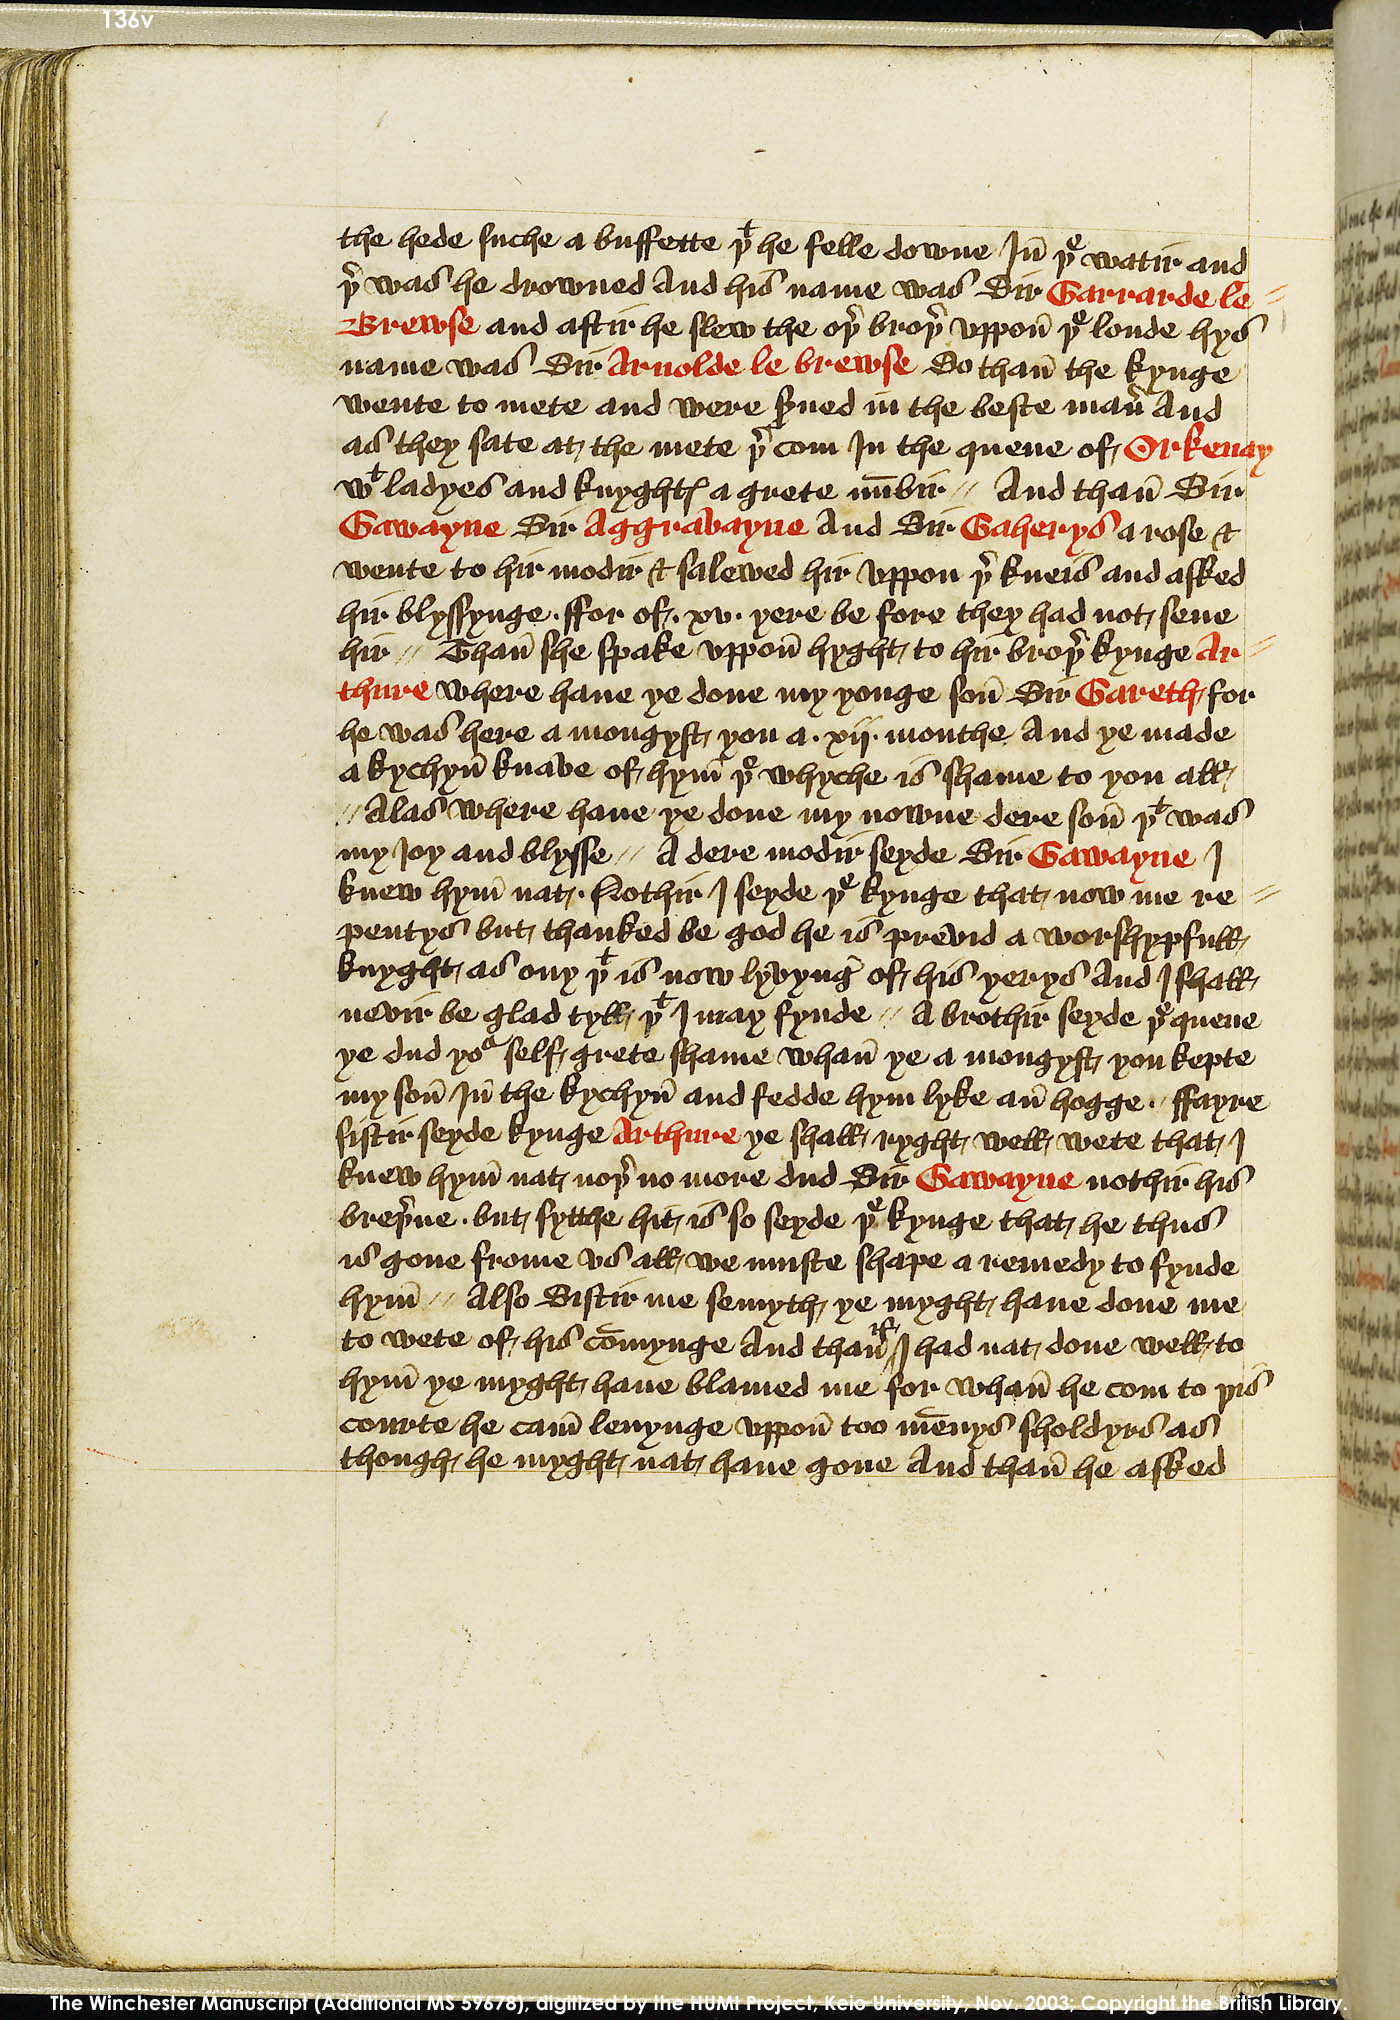 136v
the hede suche a buffette þt he felle downe Jn̄ þe watir and
þr was he drowned And his name was Sir Garrarde le
Brewse and aftir he slew the oþr broþr vppon̄ þe londe hys
name was Sir Arnolde le brewse So than̄ the kynge
wente to mete and were s̄ued in the beste man̄ And
as they sate at the mete þr com In the quene of Orkenay
wt ladyes and knyghtꝭ a grete nū̄bir // And than̄ Sir
Gawayne Sir Aggravayne And Sir Gaherys a rose &
wente to hir modir & salewed hir vppon þr kneis and asked
hir blyssynge . ffor of . xv . yere be fore they had not sene
hir // Than̄ she spake vppon̄ hyght to hir broþr kynge Ar
thure where haue ye done my yonge son̄ Sir Gareth for
he was here a mongyst you a . xij . monthe And ye made
a kychyn̄ knave of hym̄ þe whyche is shame to you all
// Alas where haue ye done my nowne dere son̄ þt was
my Joy and blysse // A dere modir seyde Sir Gawayne I
knew hym̄ nat . Nothir I seyde þe kynge that now me re
pentys but thanked be god he is previd a worshypfull
knyght as ony þt is now lyvynḡ of his yerys And I shall
nevir be glad tyll þt I may fynde // A brothir seyde þe quene
ye dud yor self grete shame whan̄ ye a mongyst you kepte
my son̄ Jn̄ the kychyn̄ and fedde hym lyke an̄ hogge . // ffayre
sistir seyde kynge Arthure ye shall ryght well wete that I
knew hym̄ nat noþr no more dud Sir Gawayne nothir his
breþrne . but sytthe hit is so seyde þe kynge that he thus
is gone frome vs all we muste shape a remedy to fynde
hym̄ // Also Sistir me semyth ye myght haue done me
to wete of his cōmynge And than̄ if I had nat done well to
hym̄ ye myght haue blamed me for whan̄ he com to þis
courte he cam̄ lenynge vppon̄ too mēnys sholdyrs as
though he myght nat haue gone And than̄ he asked
The Winchester Manuscript (Additional MS 59678), digitized by the HUMI Project, Keio University, Nov. 2003; Copyright the British Library.